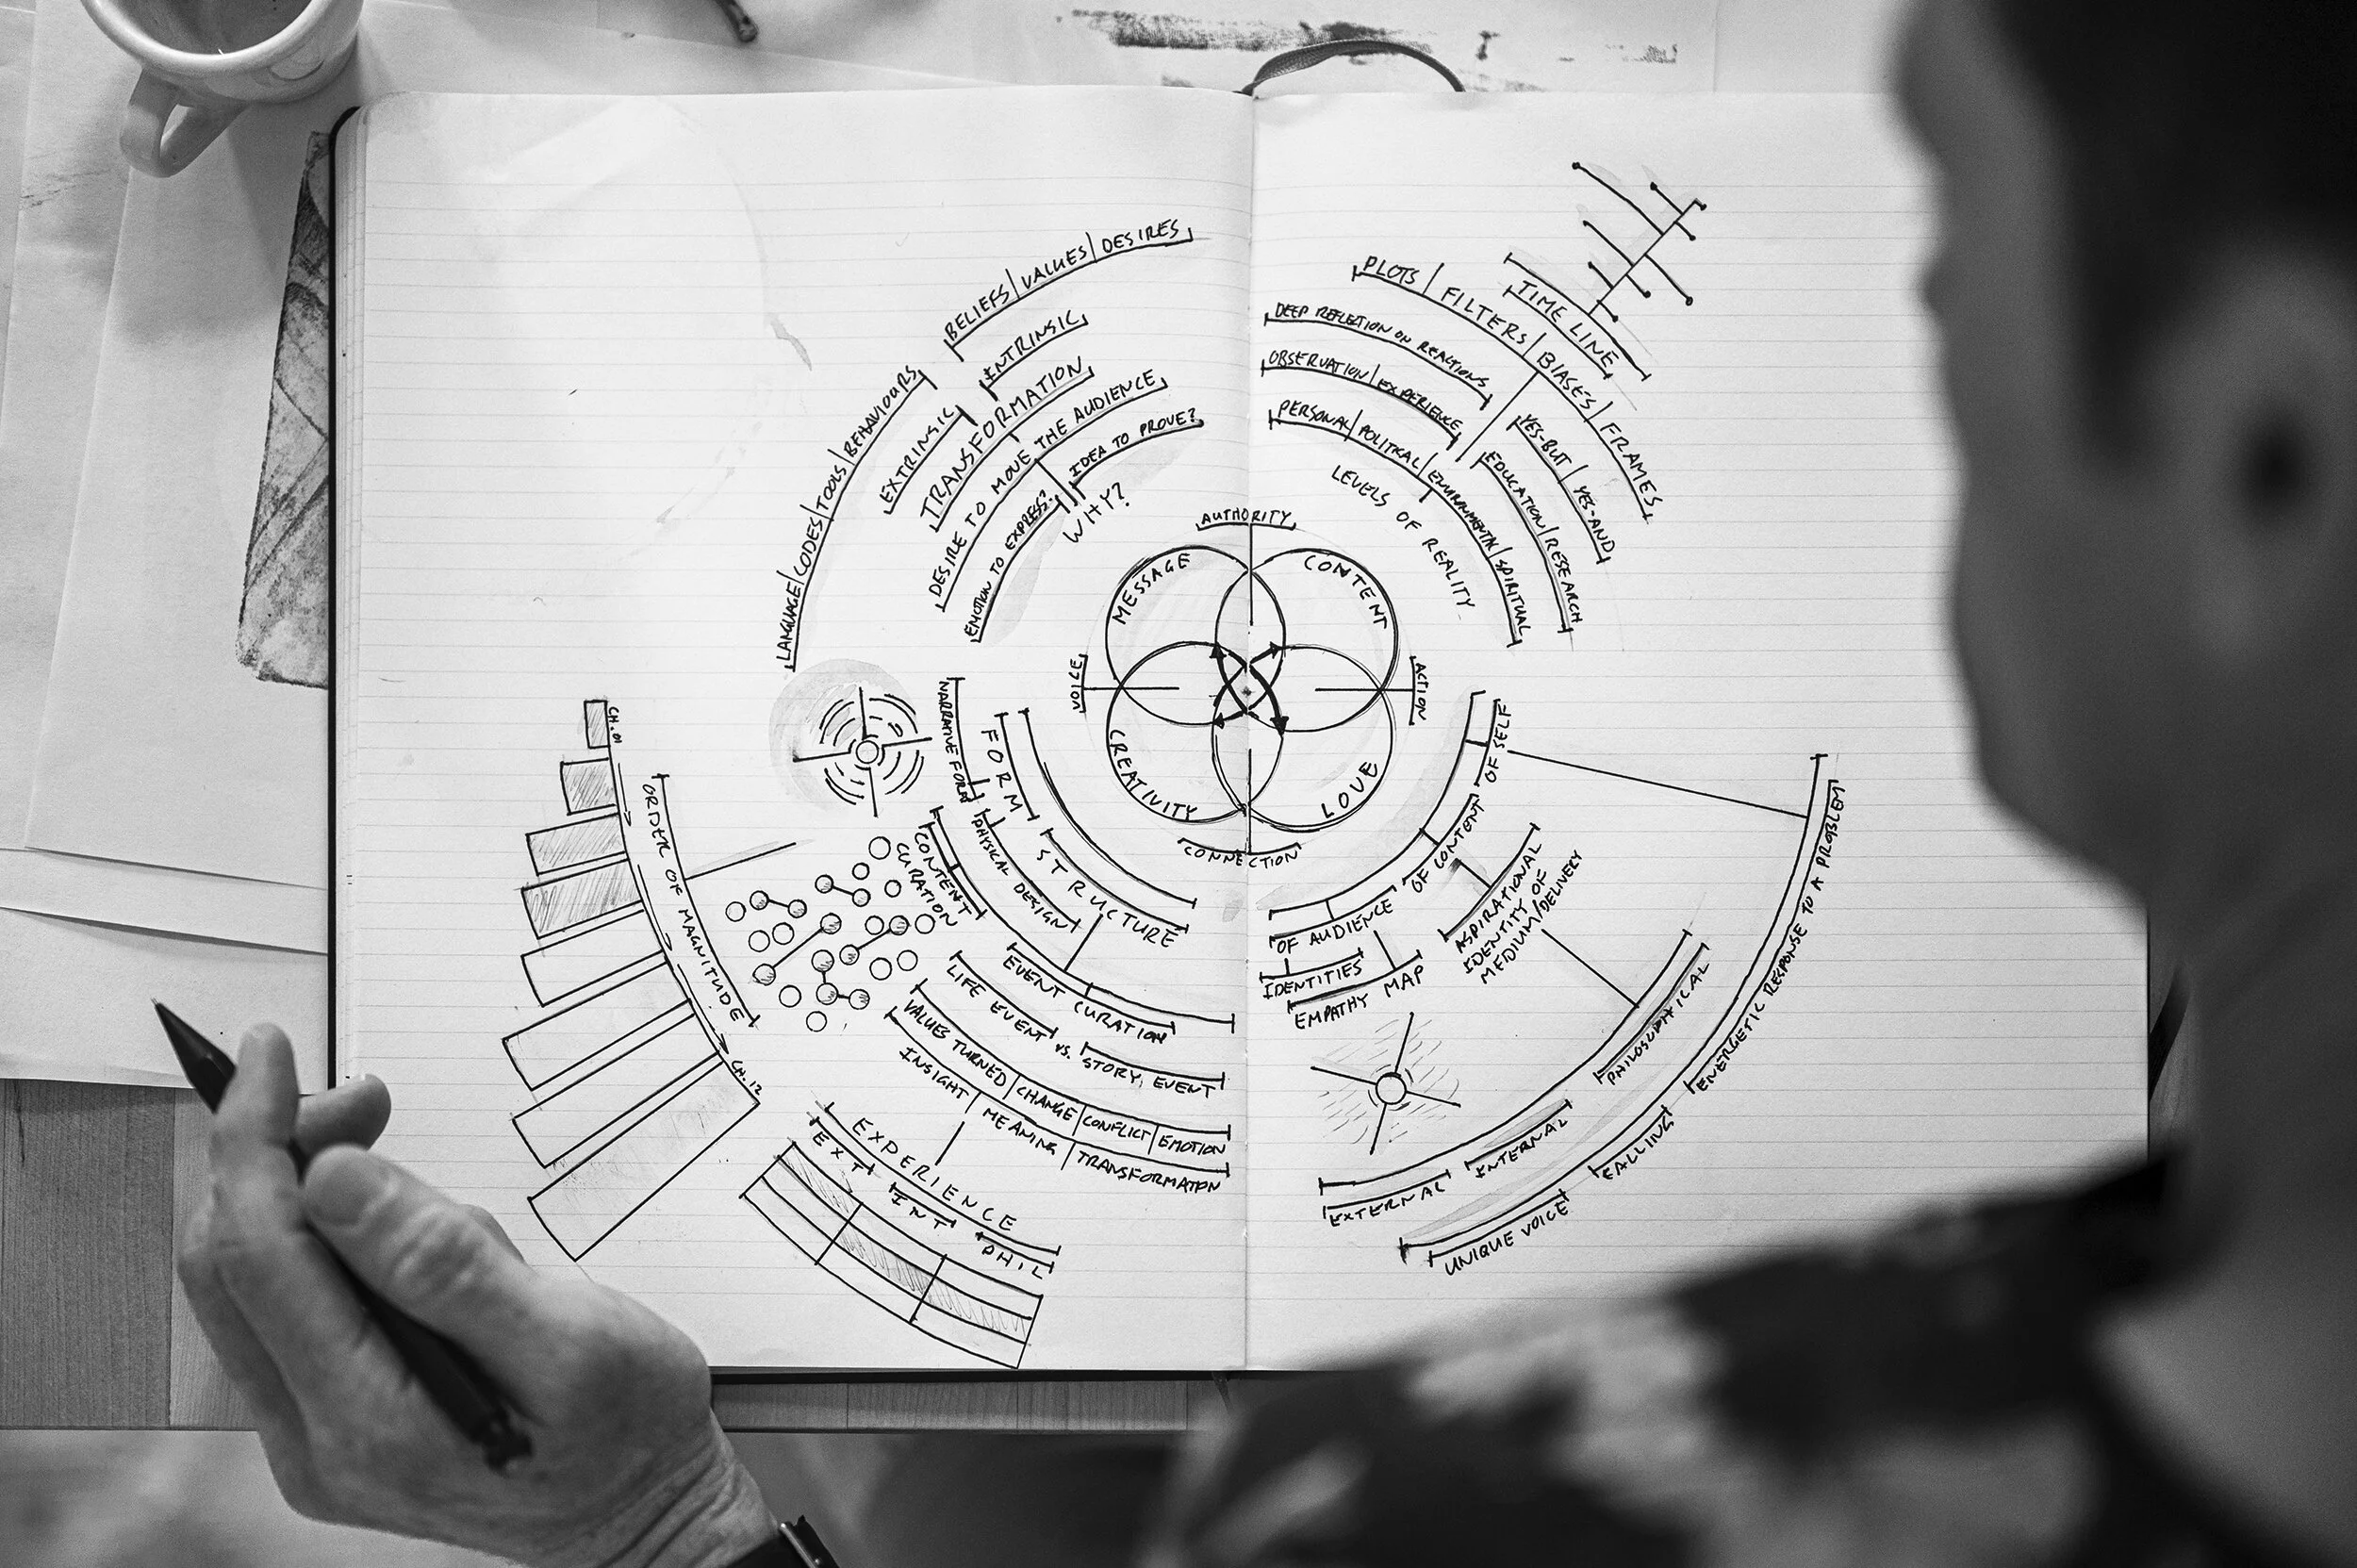 BELIEFS|VALUES|DESIRES
INTRINSIC
LANGUAGE|CODES|TOOLS|BEHAVIOURS
EXTRINSIC
TRANSFORMATION
DESIRE TO MOVE THE AUDIENCE
EMOTION TO EXPRESS?
IDEA TO PROVE?
WHY?
TIME LINE
PLOTS|FILTERS|BIASES|FRAMES
DEEP REFLETION ON REACTIONS
OBSERVATION|EXPERIENCE
YES-BUT|YES-AND
EDUCATION|RESEARCH
PERSONAL|POLITICAL|ENVIRONMENTAL|SPIRITUAL
LEVELS OF REALITY
AUTHORITY
MESSAGE
CONTENT
VOICE
ACTION
CREATIVITY
LOVE
CONNECTION
NARRATIVE FORM
FORM
STRUCTURE
PHYSICAL DESIGN
CONTENT
CURATION
CH.01
ORDER OF MAGNITUDE
CH.12
EVENT CURATION
LIFE EVENT vs. STORY EVENT
VALUES TURNED|CHANGE|CONFLICT|EMOTION
INSIGHT|MEANING|TRANSFORMATION
EXPERIENCE
EXT
INT
PHIL
OF SELF
OF CONTENT
OF AUDIENCE
IDENTITIES
EMPATHY MAP
ASPIRATIONAL
IDENTITY OF
MEDIUM/DELIVERY
EXTERNAL
INTERNAL
PHILOSOPHICAL
UNIQUE VOICE
CALLING
ENERGETIC RESPONSE TO A PROBLEM